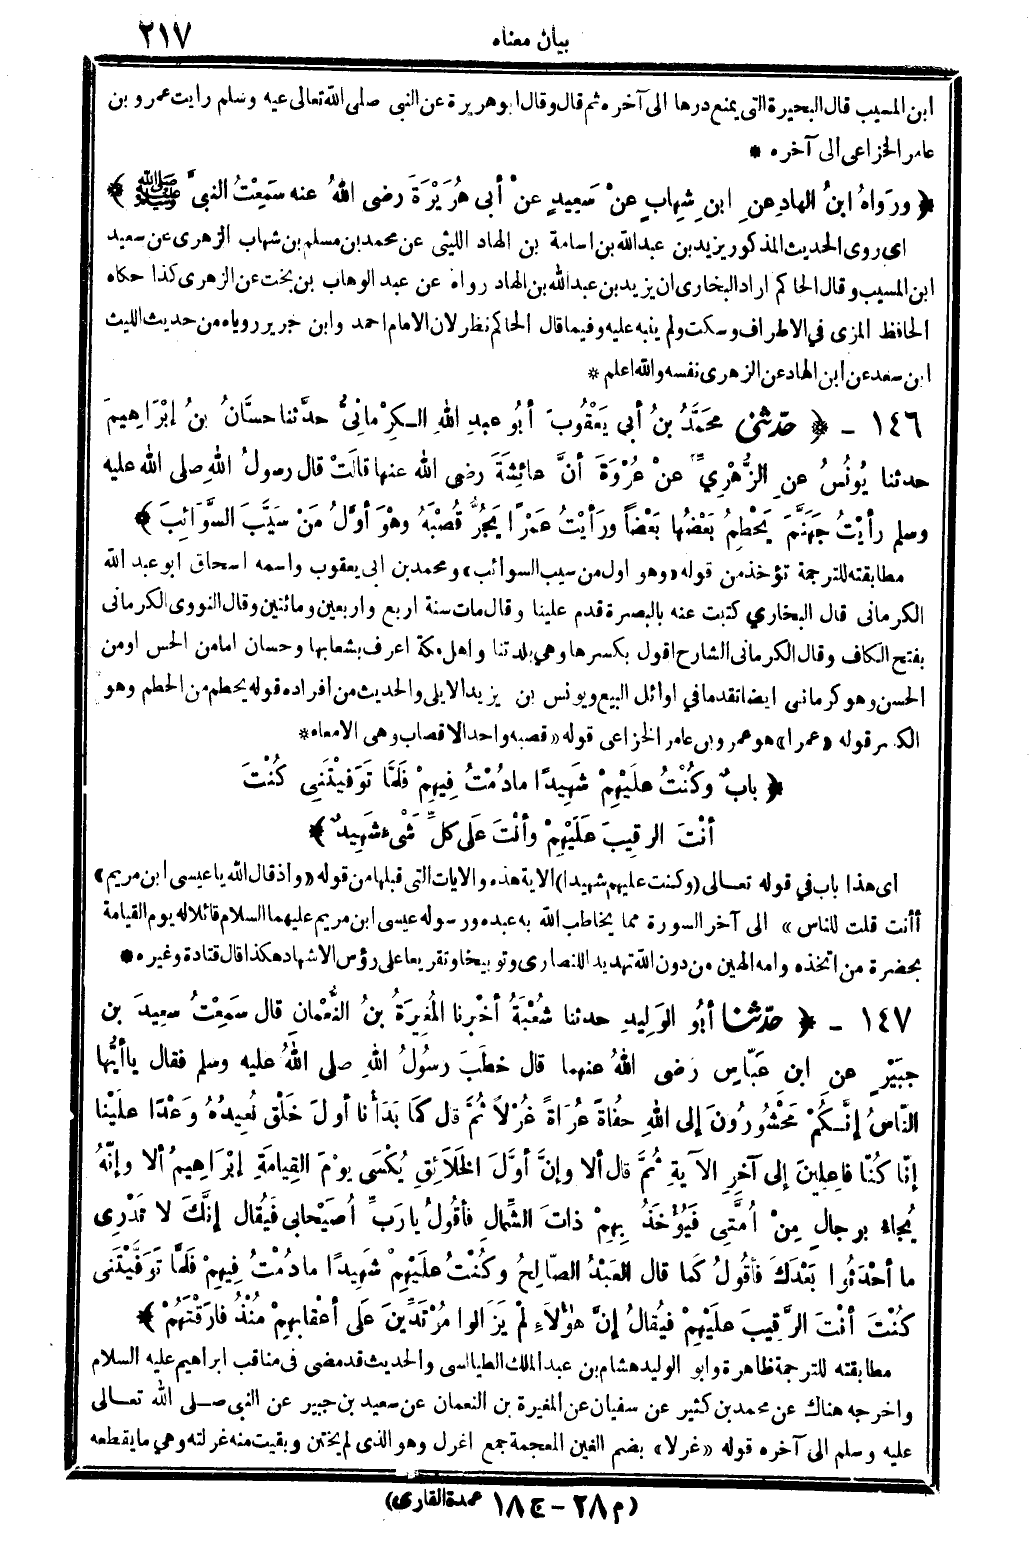 ٢١٧ بيان معناه
ابن المسيب قال البحيرة التى يمنع درها الى آخره ثم قال وقال ابو هريرة عن النبى صلى الله تعالى عيه وسلم رايت عمرو بن
عامر الخزاعى الى آخره *
﴿ ورَواهُ ابنُ الهادِ عنِ ابنِ شِهابٍ عنْ سَعِيدٍ عنْ أبى هُرَيْرَةَ رضى اللهُ عنه سَمِعْتُ النبىَّ ﷺ ﴾
اى روى الحديث المذكور يزيد بن عبدالله بن اسامة بن الهاد الليثى عن محمد بن مسلم بن شهاب الزهرى عن سعيد
ابن المسيب وقال الحاكم اراد البخارى ان يزيد بن عبدالله بن الهاد رواه عن عبد الوهاب بن بخت عن الزهرى كذا حكاه
الحافظ المزى في الاطراف وسكت ولم ينبه عليه وفيما قال الحاكم نظر لان الامام احمد وابن جرير روياه من حديث الليث
ابن سعد عن ابن الهاد عن الزهرى نفسه والله اعلم *
١٤٦ - ﴿ حدّثنى محَمَّدُ بنُ أبى يَعْقُوبَ أبُو عبدِ اللهِ الكِرْمانِىُّ حدّثنا حسَّانُ بنُ إبْرَاهِيمَ
حدثنا يُونُسُ عنِ الزُّهْرِيِّ عنْ عُرْوَةَ أنَّ عائِشَةَ رضى الله عنها قالَتْ قال رسولُ اللهِ صلى الله عليه
وسلم رأيْتُ جهَنَّمَ يَحْطِمُ بَعْضُها بَعْضاً ورَأيْتُ عَمْرًا يَجُرُّ قُصْبَهُ وهوَ أوَّلُ مَنْ سَيَّبَ السَّوَائِبَ ﴾
مطابقته للترجمة تؤخذ من قوله «وهو اول من سيب السوائب» ومحمد بن ابى يعقوب واسمه اسحاق ابو عبد الله
الكرمانى قال البخاري كتبت عنه بالبصرة قدم علينا وقال مات سنة اربع واربعين ومائتين وقال النووى الكرمانى
بفتح الكاف وقال الكرمانى الشارح اقول بكسرها وهي بلدتنا واهل مكة اعرف بشعابها وحسان امامن الحس اومن
الحسن وهو كرمانى ايضا تقدما في اوائل البيع ويونس بن يزيد الايلى والحديث من أفراده قوله يحطم من الحطم وهو
الكسر قوله «عمرا» هو عمرو بن عامر الخزاعى قوله «قصبه واحد الاقصاب وهى الامعاء *
﴿ بابٌ وكُنْتُ علَيْهِمْ شَهِيدًا مادُمْتُ فِيهِمْ فَلَمَّا تَوَفَّيْتَنِى كُنْتَ
أنْتَ الرقِيبَ عَلَيْهِمْ وأنْتَ عَلَى كلِّ شَىْءٍ شَهِيدٌ ﴾
اى هذا باب في قوله تعالى (وكنت عليهم شهيدا) الاية هذه والايات التى قبلها من قوله «واذ قال الله يا عيسى ابن مريم»
أأنت قلت للناس» الى آخر السورة مما يخاطب الله به عبده ورسوله عيسى ابن مريم عليهما السلام قائلا له يوم القيامة
بحضرة من اتخذه وامه الهين من دون الله تهديد اللنصارى وتوبيخا وتقريعا على رؤس الاشهاد هكذا قال قتادة وغيره *
١٤٧ - ﴿ حدّثنا أبُو الوَلِيدِ حدثنا شُعْبَةُ أخْبرنا المُغِيرَةُ بنُ النُّعْمانِ قال سَمِعْتُ سعِيدَ بن
جبَيْرٍ عنِ ابنِ عَبَّاسٍ رَضى اللهُ عنهما قال خطَبَ رسُولُ اللهِ صلى اللهُ عليه وسلم فقال ياأيُّها
النَّاسُ إنَّكُمْ مَحْشُورُونَ إلى اللهِ حفُاةً عُرَاةً غُرْلاً ثُمَّ قال كمَا بَدَأنا أولَ خَلْق نُعِيدُهُ وَعْدًا علَيْنا
إنَّا كُنَّا فاعِلِينَ إلى آخرِ الآيةِ ثُمَّ قال ألا وإنَّ أوَّلَ الخَلائِقِ يُكْسَى يوْمَ القِيامَةِ إبْرَاهِيمُ ألا وإنَّهُ
يُجاءُ برِجالٍ مِنْ أُمَّتِى فَيُؤْخَذُ بِهِمْ ذَاتَ الشِّمالِ فأقُولُ يارَبِّ أُصَيْحابى فَيُقال إنَّكَ لا تَدْرِى
ما أحْدَثُوا بَعْدَكَ فأقُولُ كمَا قال العَبْدُ الصَّالِحُ وكُنْتُ علَيْهِمْ شَهِيدًا مادُمْتُ فِيهِمْ فَلَمَّا تَوَفَّيْتَنِى
كُنْتَ أنْتَ الرَّقِيبَ علَيْهِمْ فَيُقالُ إنَّ هٰؤُلاَءِ لَمْ يَزَالُوا مُرْتَدِّينَ عَلَى أعْقابِهِمْ مُنْذُ فارَقْتَهُمْ ﴾
مطابقته للترجمة ظاهرة وابو الوليد هشام بن عبد الملك الطيالسى والحديث قد مضى فى مناقب ابراهيم عليه السلام
واخرجه هناك عن محمد بن كثير عن سفيان عن المغيرة بن النعمان عن سعيد بن جبير عن النبى صلى الله تعالى
عليه وسلم الى آخره قوله «غرلا» بضم الغين المعجمة جمع اغرل وهو الذى لم يختن وبقيت منه غرلته وهي ما يقطعه
(م ٢٨ - ج ١٨ عمدة القارى)